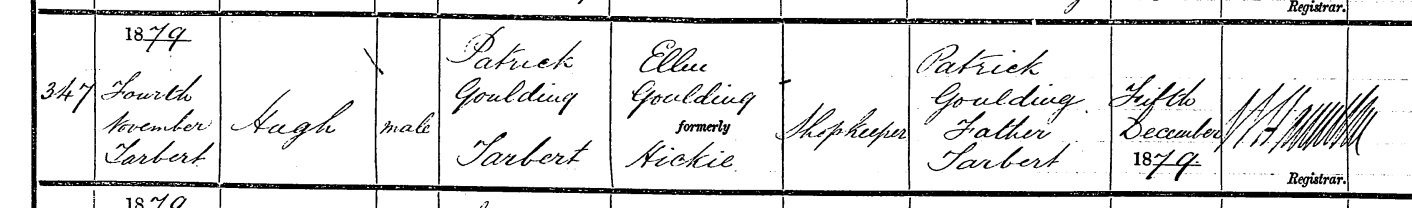 Registrar.
347
1879
Fourth
November
Tarbert
Hugh
male
Patrick
Goulding
Tarbert
Ellen
Goulding
formerly
Hickie
Shopkeeper
Patrick
Goulding
Father
Tarbert
Fifth
December
1879
Registrar.
1879